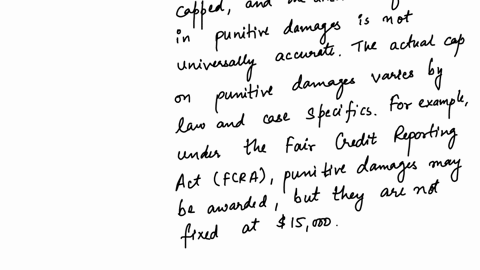 capped, and
in punitive damages is not
universally accurate. The actual cap
on punitive damages varies by
law and case specifics. For example,
under the Fair Credit Reporting
Act (FCRA), punitive damages may
be awarded, but they are not
fixed at $15,000.